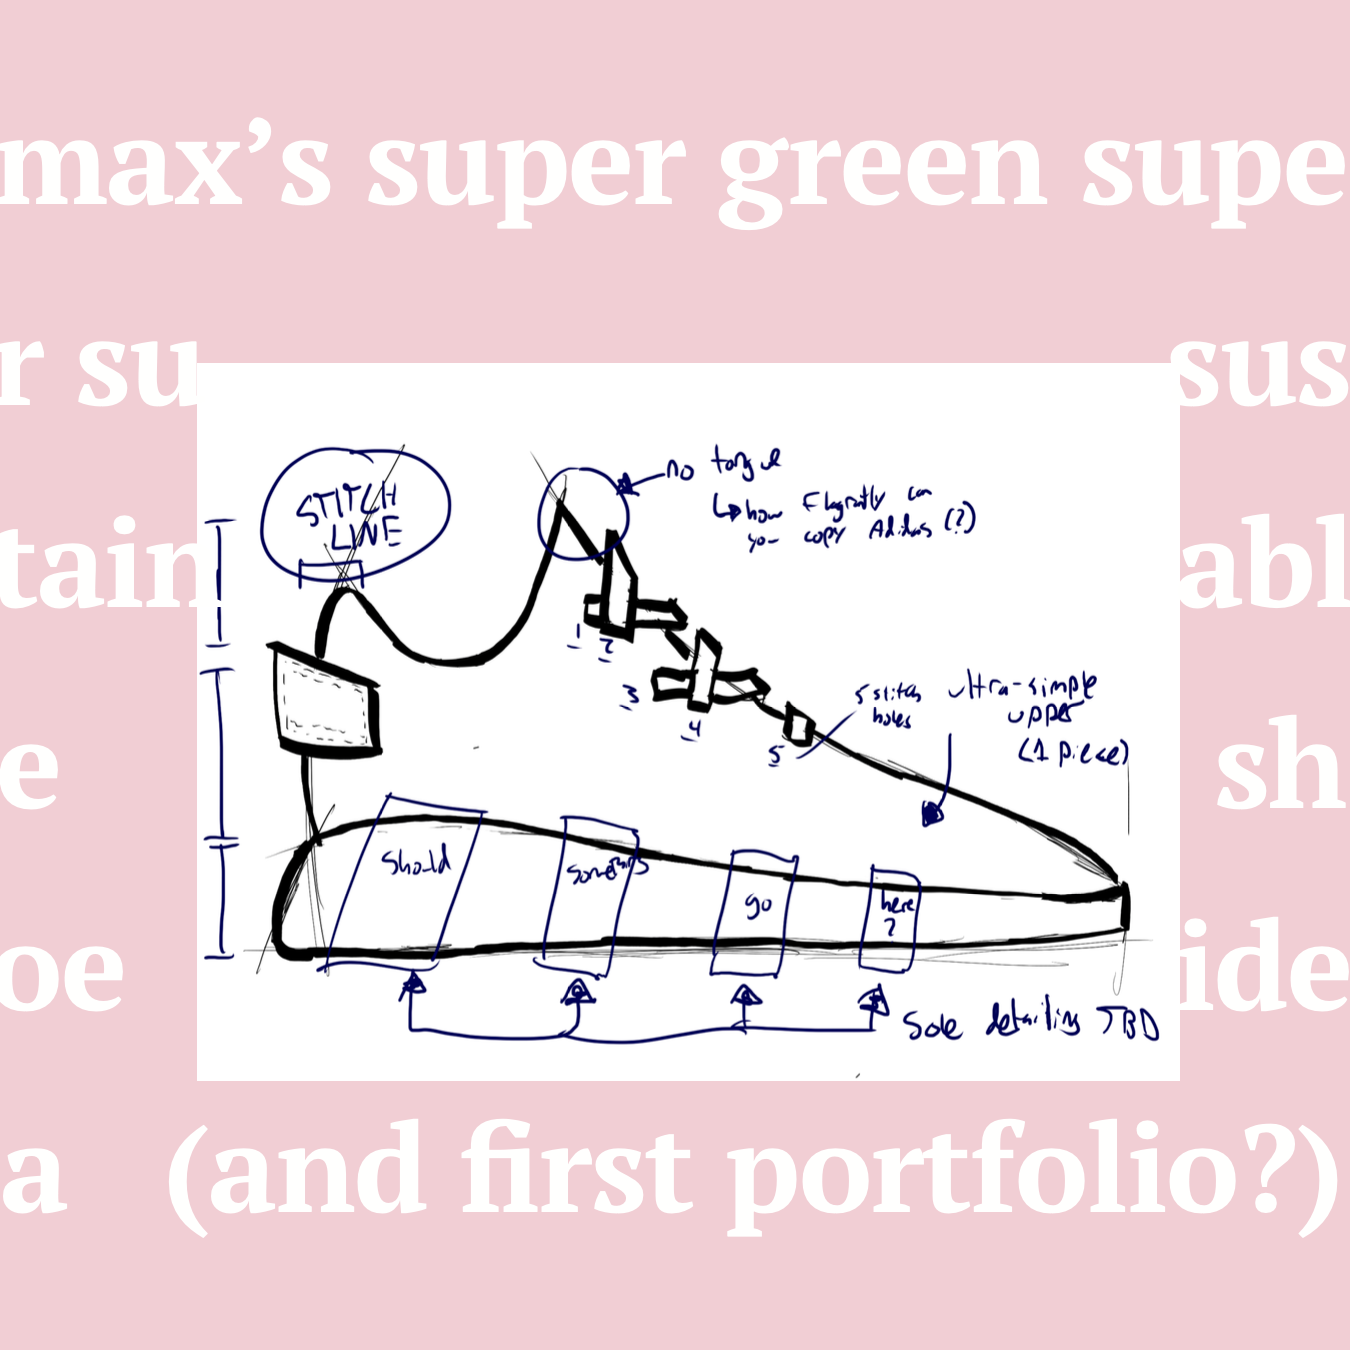 max’s super green supe
r su sus
tain abl
e sh
oe ide
a (and first portfolio?)
STITCH
LINE
no tongue
how flagrantly can
you copy Adidas (?)
1 2
3
4
5
5 stitch
holes
ultra-simple
upper
(1 piece)
Should something go here
?
Sole detailing TBD